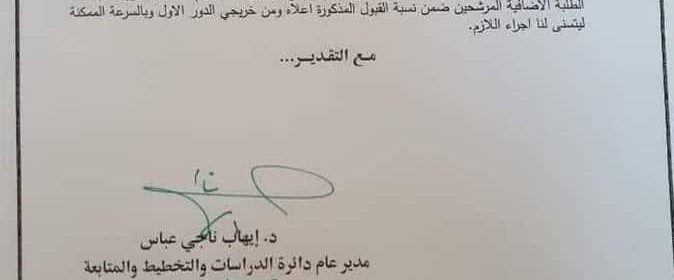 الطلبة الاضافية المرشحين ضمن نسبة القبول المذكورة اعلاه ومن خريجي الدور الاول وبالسرعة الممكنة
ليتسنى لنا اجراء اللازم.
مع التقدير...
د. إيهاب ناجي عباس
مدير عام دائرة الدراسات والتخطيط والمتابعة